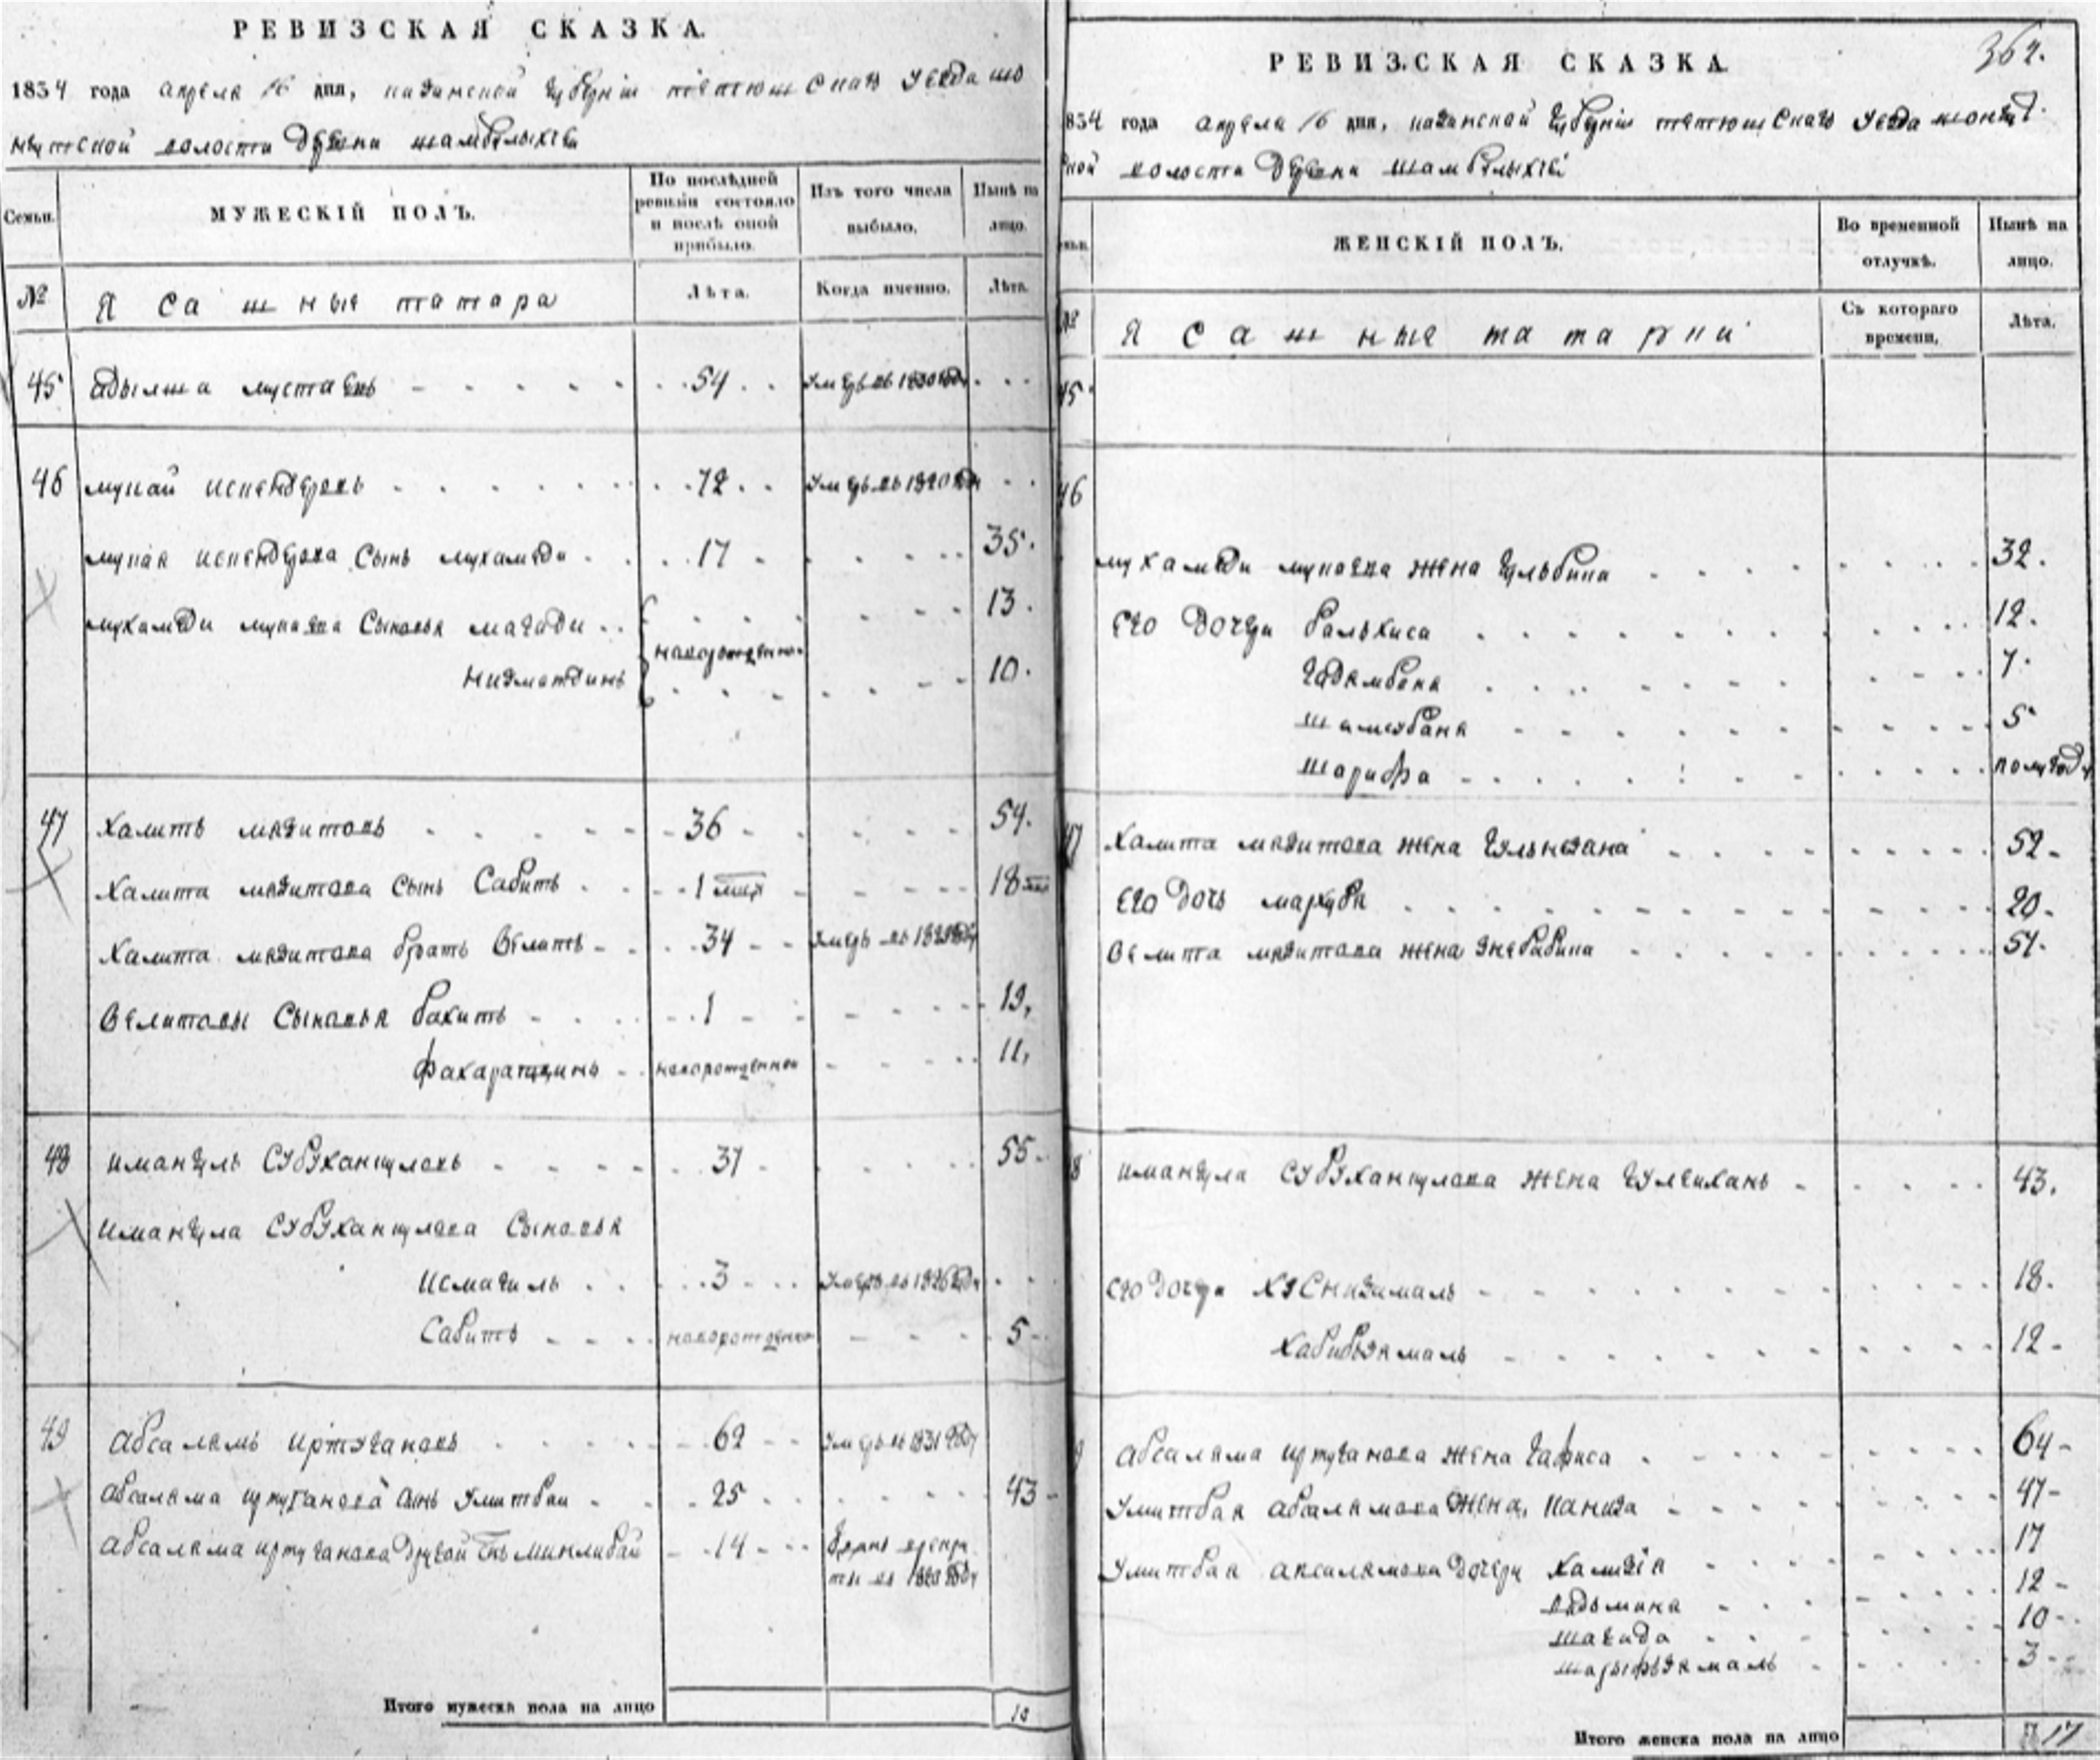 РЕВИЗСКАЯ СКАЗКА.
1834 года апреля 16 дня, казанской губерніи тетюшскаго уезда шо
нгутской волости деревни шамбулыхчи
Семьи. МУЖЕСКІЙ ПОЛЪ. По послѣдней ревизіи состояло и послѣ оной прибыло. Изъ того числа выбыло. Нынѣ на лицо.
№ Ясашныя татара Лѣта. Когда именно. Лѣта.
45 Адылша мустаевъ 54 умеръ въ 1830 году
46 мукай испендеревъ 72 умеръ въ 1820 году
мукая испендерева сынъ мухамеди 17 35.
мухамеди мукаева сыновья магади 13.
новорожденны
низматдинъ 10.
47 Халитъ мязитовъ 36 54.
Халита мязитова сынъ Сабитъ 1 18
Халита мязитова братъ Велитъ 34 умеръ въ году
Велитовы сыновья бакитъ 1 19,
факаратдинъ новорожденной 11,
48 имангулъ субуханкуловъ 37 55.
имангула субуханкулова сыновья
исмагиль 3 умеръ въ 1826 году
Сабитъ новорожденной 5
49 абсалямъ иртугановъ 62 умеръ въ 1831 году
абсаляма иртуганова сынъ Умитбай 25 43
абсаляма иртуганова другой минлибай 14 отданъ въ рекру
ты въ году
Итого мужеска пола на лицо 10
364.
РЕВИЗСКАЯ СКАЗКА.
834 года апреля 16 дня, казанской губерніи тетюшскаго уезда шонгут
ской волости деревни шамбулыхчи
ЖЕНСКІЙ ПОЛЪ. Во временной отлучкѣ. Нынѣ на лицо.
№ Ясашныя татарки Съ котораго времени. Лѣта.
45
46
мухамеди мукаева жена гульбика 32.
его дочери бальхиса 12.
7.
шамсбана 5
шарифа полугоду
47 Халита мязитова жена 52
его дочь 20
Велита мязитова жена 51
8 имангула субуханкулова жена гулеихань 43.
его дочери хуснизямаль 18.
хабибьзямаль 12
9 абсаляма иртуганова жена гафиса 64
Умитбая абсалямова жена, 47
Умитбая абсалямова дочери 17
12
шагида 10
шарифьзямаль 3
Итого женска пола на лицо 17